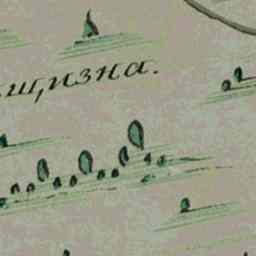 щизна.